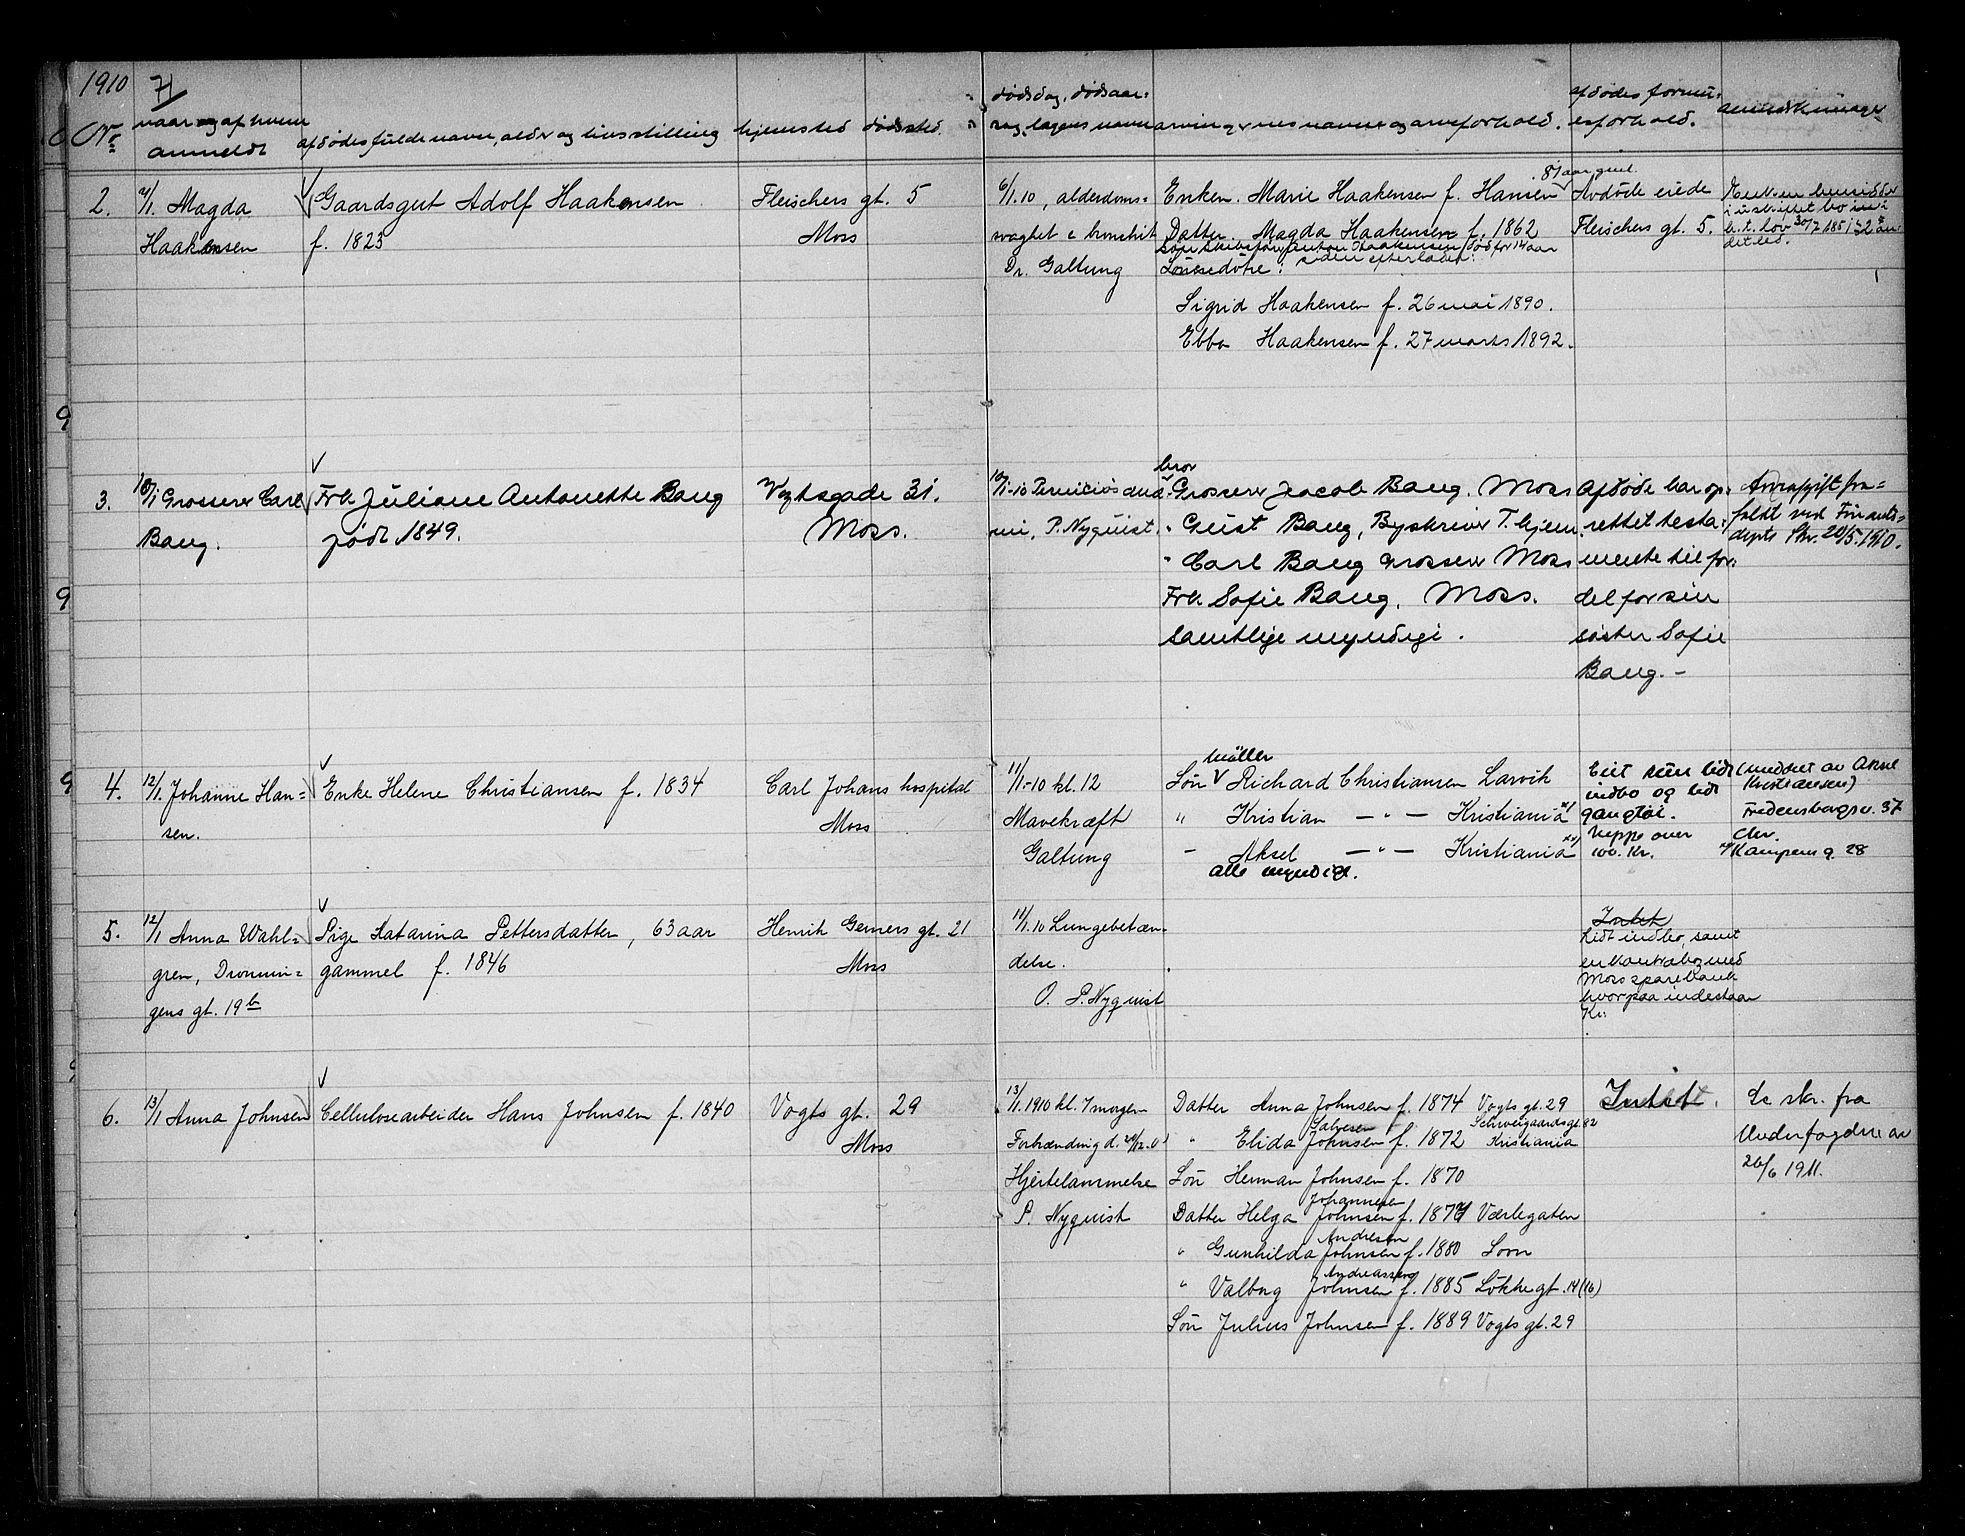 1910 7/
Nr. naar og af hvem anmeldt
afdødes fulde navn, alder og livsstilling
hjemsted dødssted
dødsdag, dødsaar- sag, lægens navn
arvingernes navne og arveforhold.
afdødes formu- esforhold.
anmærkninger
2.
7/1. Magda
Haakensen
Gaardsgut Adolf Haakensen
f. 1823
Fleischers gt. 5
Moss
6/1.10, alderdoms-
svaghet & bronchit
Dr. Galtung
81 aar gml.
Enken. Marie Haakensen f. Hansen
Datter. Magda Haakensen f. 1862
Søn skibsfører Anton Haakensen død for 14 aar
siden efterlader:
Sönnedötre:
Sigrid Haakensen f. 26 mai 1890.
Ebba Haakensen f. 27 marts 1892.
Avdöde eiede
Fleischers gt. 5.
Enken hensidder
i uskiftet bo
h. t. lov 30/7 1851 § 2
det led.
3.
10/1 Grosserer Carl
Bang.
Frk Juliane Antonette Bang
født 1849.
Vogtsgade 31.
Moss.
10/1-10 Perniciøs anæ-
mi, P. Nyquist.
bror
Grosserer Jacob Bang. Moss
" Gust Bang, Byskriver T.hjem.
" Carl Bang Grosserer Moss
Frk Sofie Bang. Moss.
Samtlige myndige.
Afdøde har op-
rettet testa-
mente til for-
del for sin
søster Sofie
Bang. -
Arveafgift fra-
faldt ved Finants-
depts Skr. 20/5. 1910.
4.
12/1. Johanne Han-
sen.
Enke Helene Christiansen f. 1834
Carl Johans hospital
Moss
11/1-10 kl. 12
Mavekræft
Galtung
Möller
Søn V Richard Christiansen Larvik
" Kristian — " — Kristiania x)
- Aksel — " — Kristiania xx)
Alle myndige.
Eiet kun lidt
indbo og lidt
gangtøi.
Neppe over
100. Kr.
(meddelt av Aksel
Kristiansen)
Fredensborgsv. 37
Chr.
Kampens g. 28
5.
12/1 Anna Wahl-
gren, Dronnin-
gens gt. 19 b
Pige Katarina Pettersdatter, 63 aar
gammel f. 1846
Henrik Gerners gt. 21
Moss
11/1.10 Lungebetæn-
delse.
O. P. Nyquist
Intet
Lidt indbo, samt
en kontrabog med
Moss sparebank
hvorpaa indestaar
Kr.
6.
13/1 Anna Johnsen
Cellulosearbeider Hans Johnsen f. 1840
Vogts gt. 29
Moss
13/1. 1910 kl. 7 morgen
Hjertelammelse
P. Nyquist
Datter Anna Johnsen f. 1874 Vogts gt. 29
Salvesen Schweigaardsgt. 82
" Elida Johnsen f. 1872 Kristiania
Sön Herman Johnsen f. 1870
Johannesen
Datter Helga Johnsen f. 1877 Værlegaten
Andresen
" Gunhilda Johnsen f. 1880 Son
Andreassen
" Valborg Johnsen f. 1885 Lökke gt. 14 (16)
Sön Julius Johnsen f. 1889 Vogts gt. 29
Intet.
Se skr. fra
Underfogden av
26/6 1911.